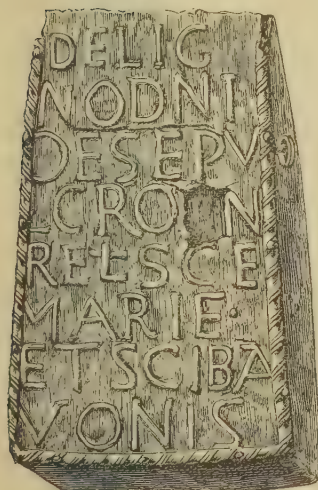 DELIG
NODNI
DESEPV
LCRO N
RELSCE
MARIE·
ETSCIBA
VONIS